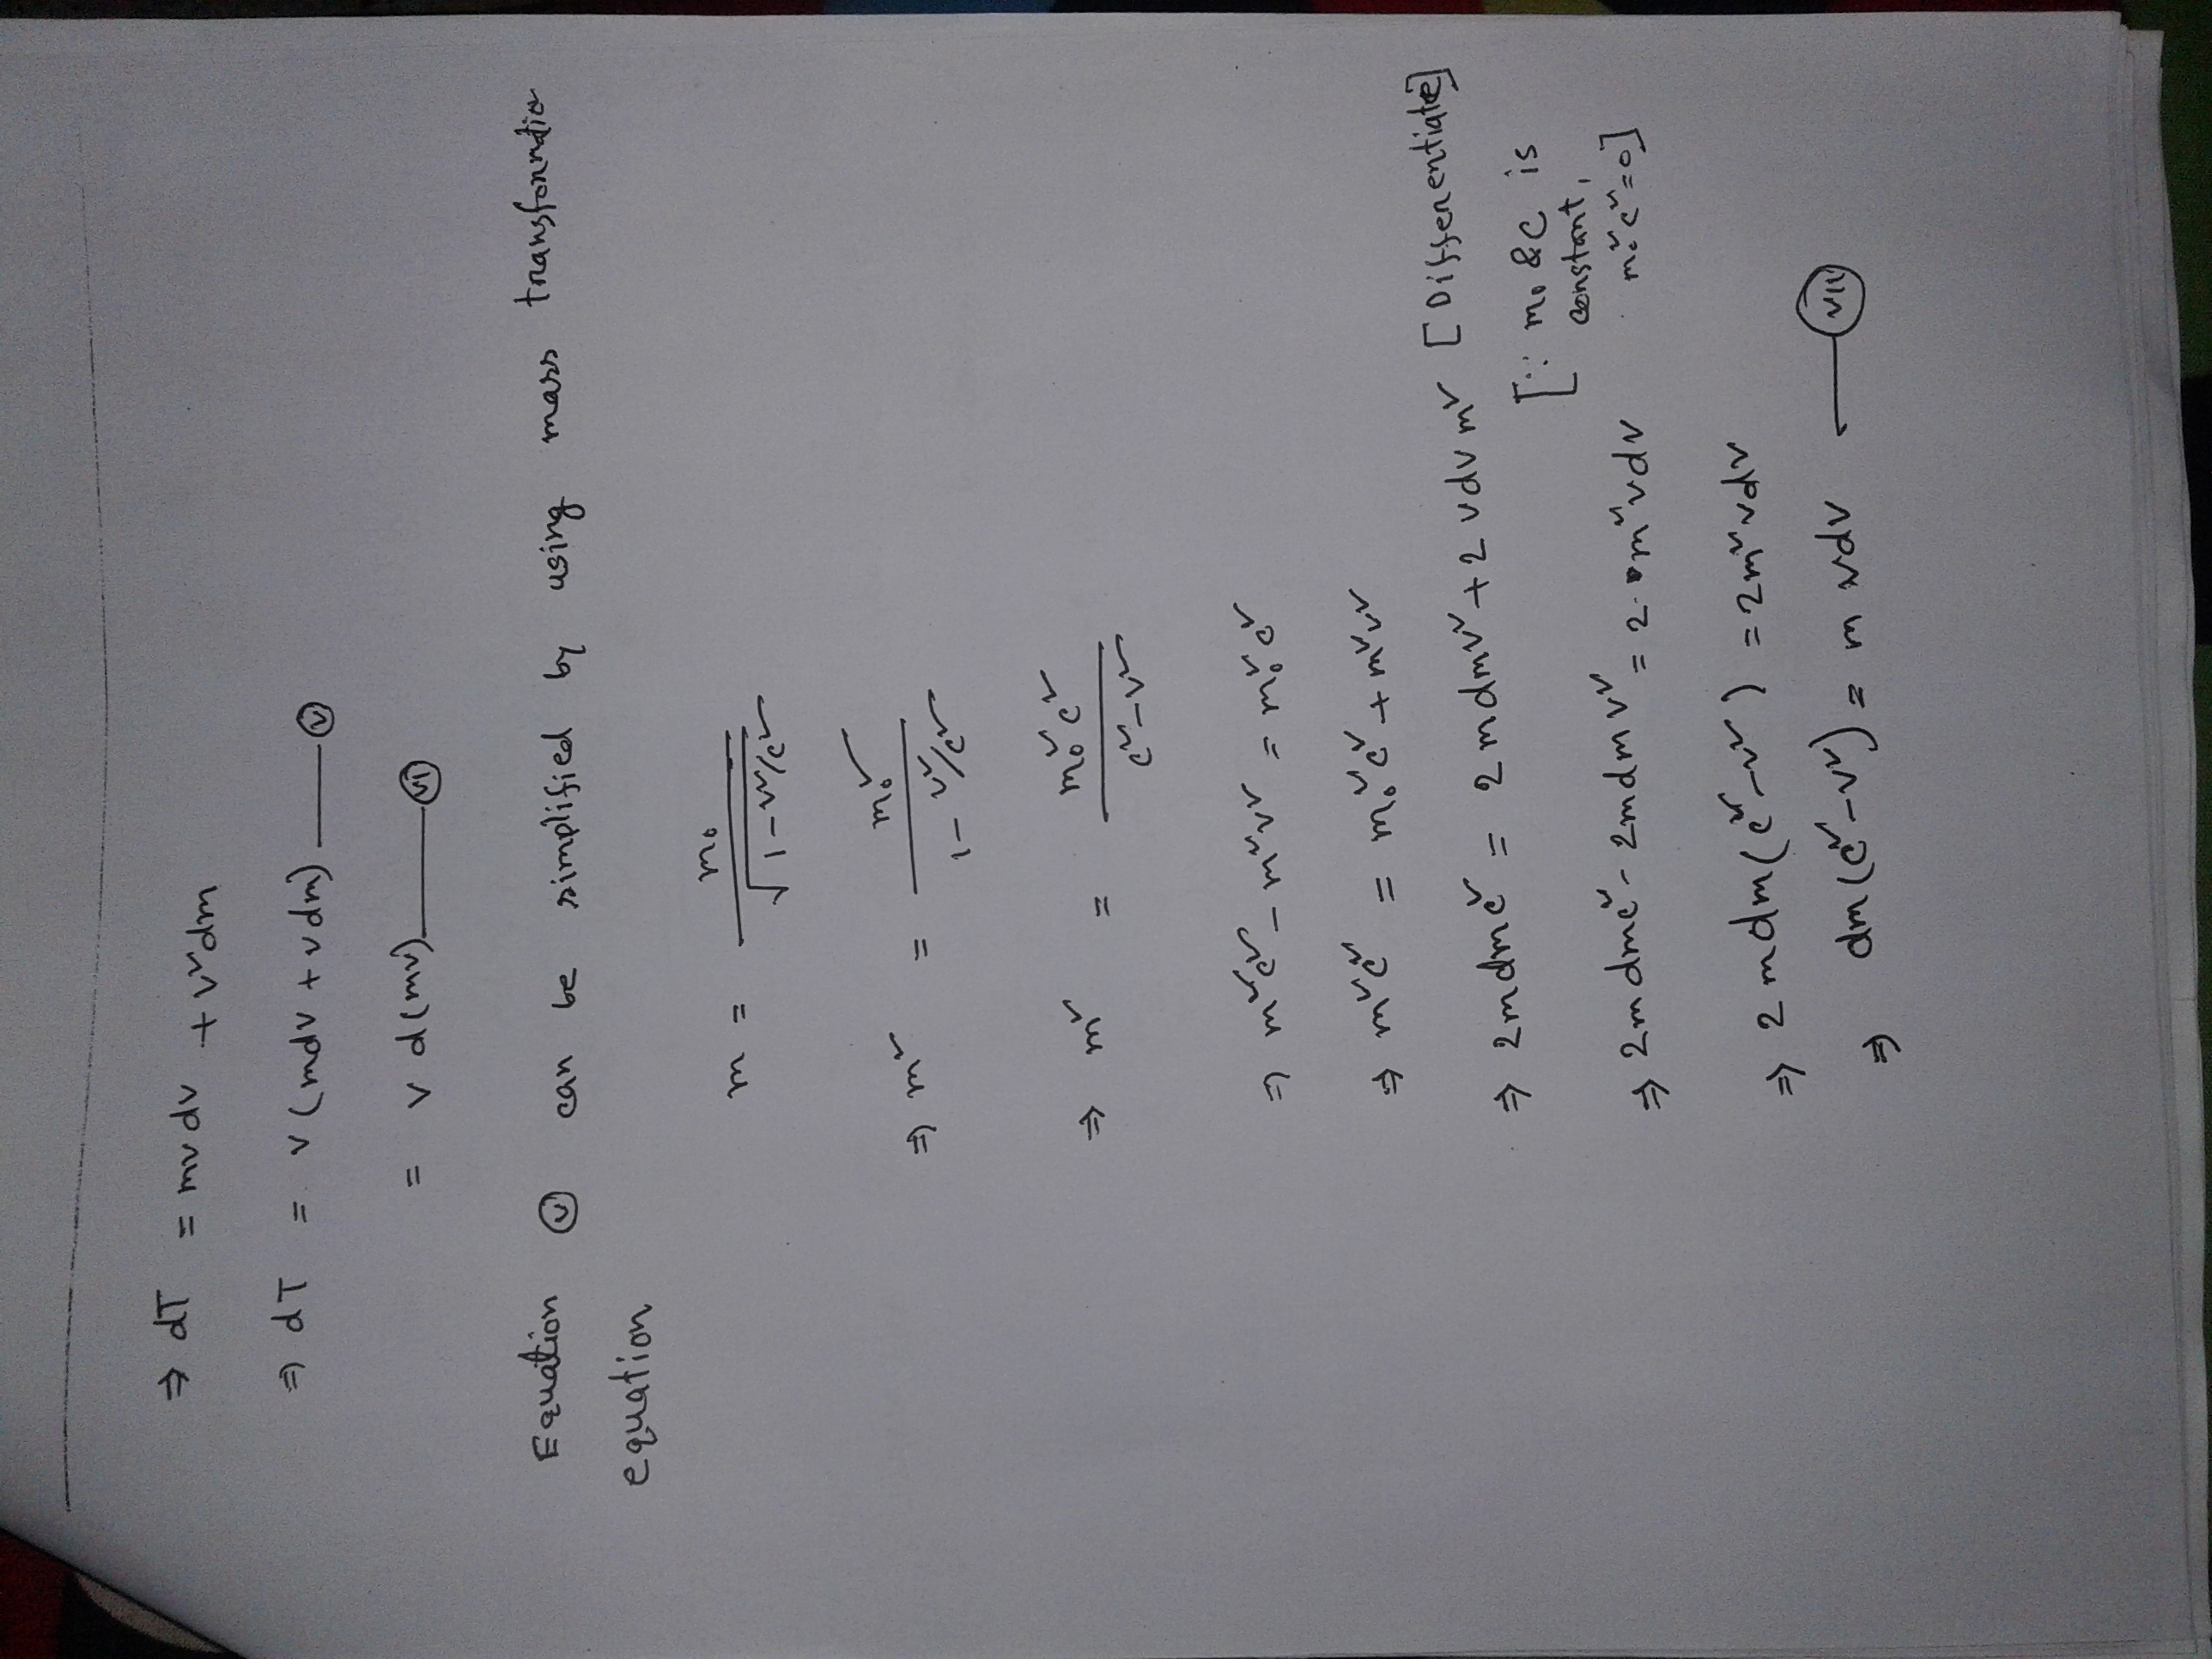 ⇒ dT = mv dv + v²dm
⇒ dT = v (mdv + vdm) —— (v)
= v d(mv) —— (vi)
Equation (v) can be simplified by using mass transformatio
equation
m = m₀ / √(1 - v²/c²)
⇒ m² = m₀² / (1 - v²/c²)
⇒ m² = m₀²c² / (c² - v²)
⇒ m²c² - m²v² = m₀²c²
⇒ m²c² = m₀²c² + m²v²
⇒ 2mdmc² = 2mdmv² + 2vdvm² [Differentiate]
[∵ m₀ & c is
constant,
m₀²c²=0]
⇒ 2mdmc² - 2mdmv² = 2·m²vdv
⇒ 2mdm(c² - v²) = 2m²vdv
⇒ dm(c² - v²) = m vdv —— (vii)